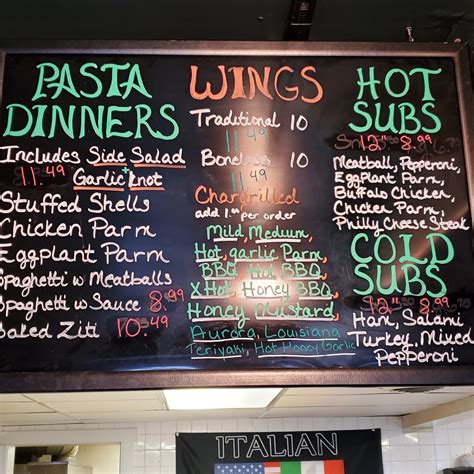 PASTA
DINNERS
Includes Side Salad
11.49 + Garlic Knot
Stuffed Shells
Chicken Parm
Eggplant Parm
Spaghetti w Meatballs
Spaghetti w Sauce 8.99
Baked Ziti 10.49
WINGS
Traditional 10
11.49
Boneless 10
11.49
Chargrilled
add 1.00 per order
Mild, Medium,
Hot, garlic Parm
BBQ, Hot BBQ,
XHot, Honey BBQ,
Honey Mustard,
Aurora, Louisiana
Teriyaki, Hot Honey Garlic
HOT
SUBS
12" 8.99
Meatball, Pepperoni,
Eggplant Parm,
Buffalo Chicken,
Chicken Parm,
Philly Cheese Steak
COLD
SUBS
12" 8.99
Ham, Salami
Turkey, Mixed
Pepperoni
ITALIAN